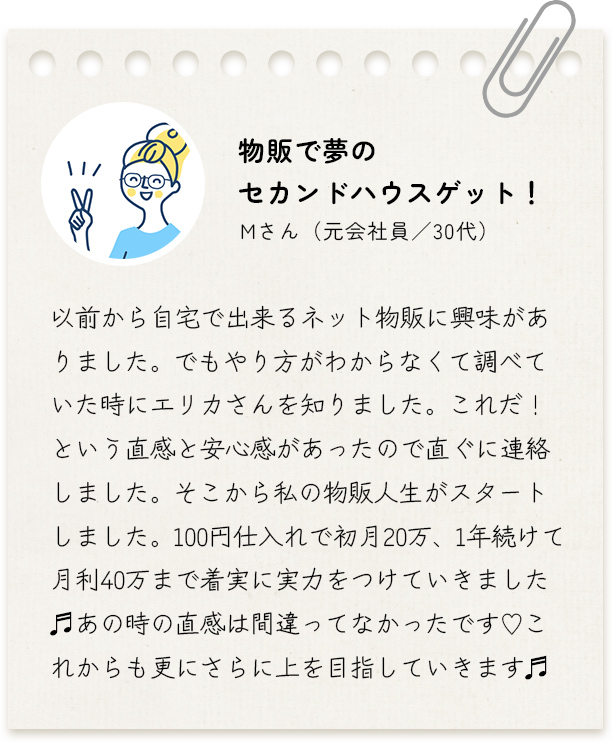 物販で夢の
セカンドハウスゲット！
Mさん（元会社員／30代）
以前から自宅で出来るネット物販に興味があ
りました。でもやり方がわからなくて調べて
いた時にエリカさんを知りました。これだ！
という直感と安心感があったので直ぐに連絡
しました。そこから私の物販人生がスタート
しました。100円仕入れで初月20万、1年続けて
月利40万まで着実に実力をつけていきました
🎵あの時の直感は間違ってなかったです♡こ
れからも更にさらに上を目指していきます🎵